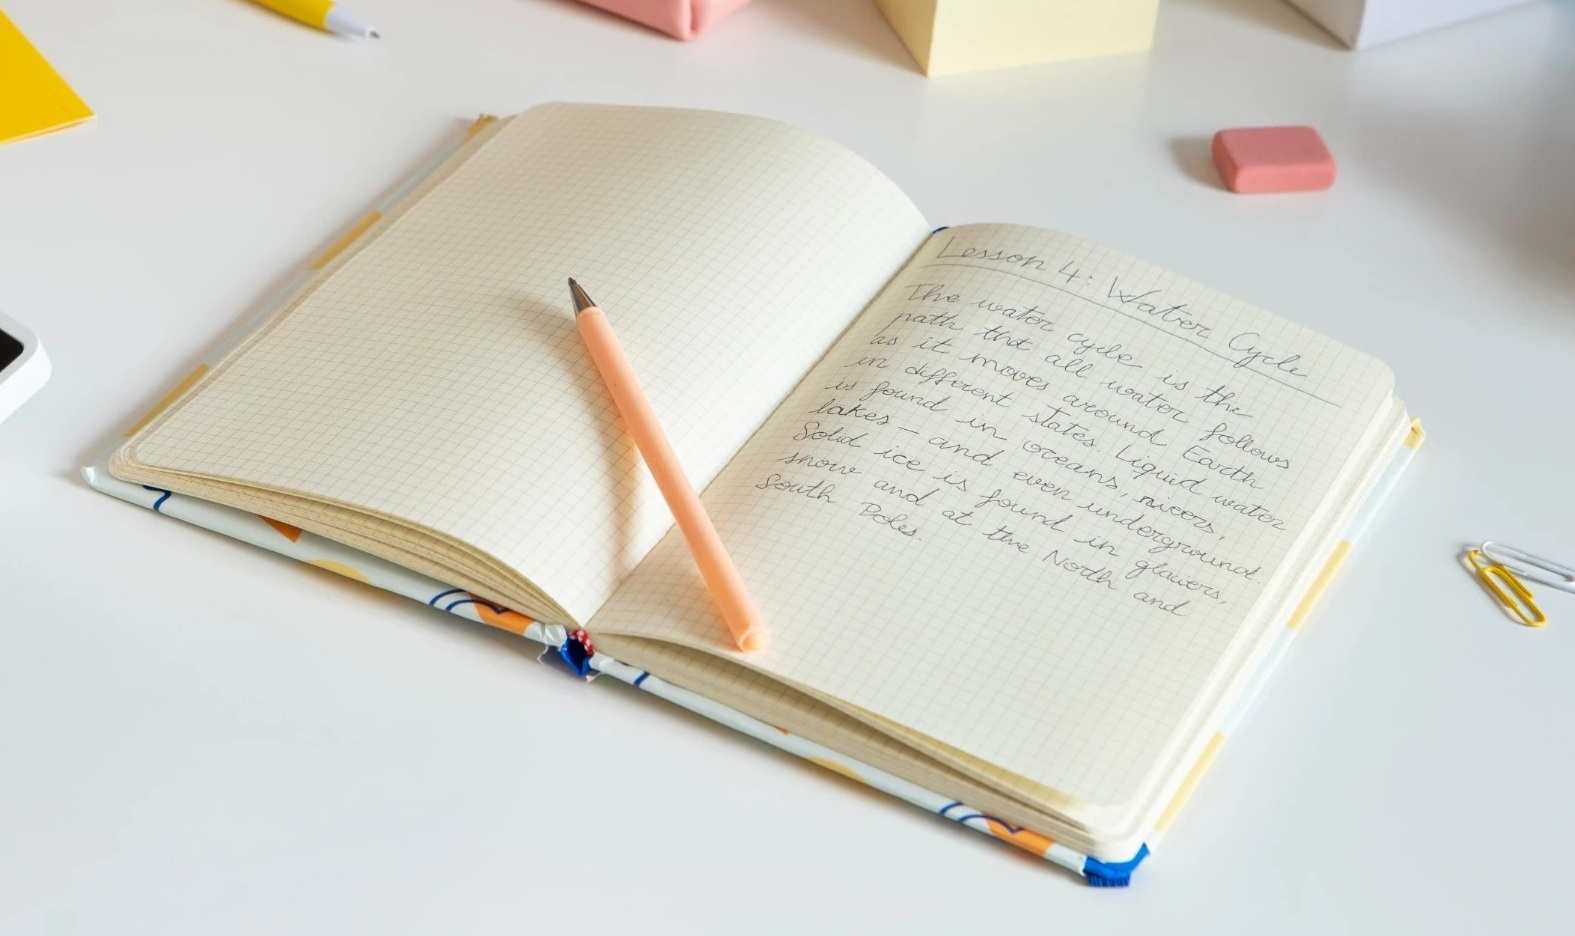 Lesson 4: Water Cycle
The water cycle is the
path that all water follows
as it moves around Earth
in different states. Liquid water
is found in oceans, rivers,
lakes – and even underground.
Solid ice is found in glaciers,
snow and at the North and
South Poles.